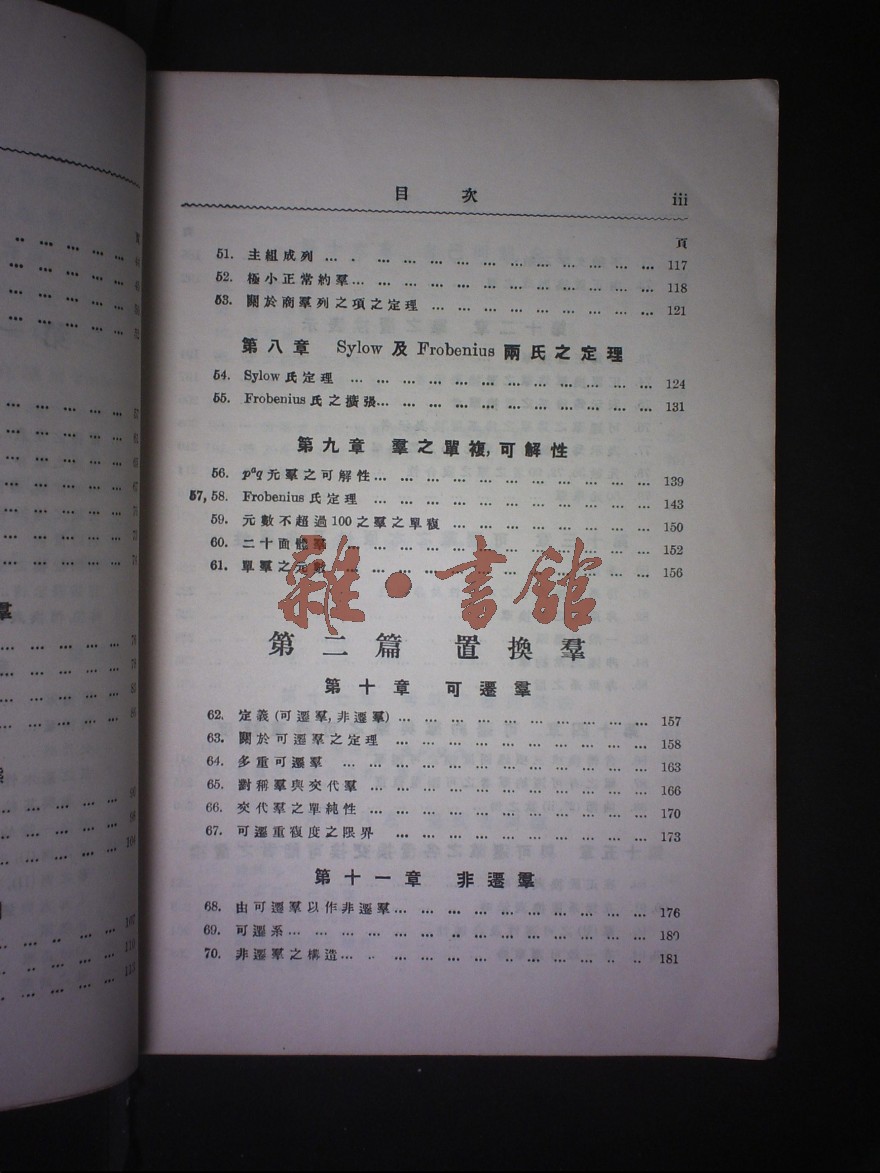 目 次 iii
頁
51. 主組成列 ... 117
52. 極小正常約羣 ... 118
53. 關於商羣列之項之定理 ... 121
第八章 Sylow 及 Frobenius 兩氏之定理
54. Sylow 氏定理 ... 124
55. Frobenius 氏之擴張 ... 131
第九章 羣之單複,可解性
56. pᵃq 元羣之可解性 ... 139
57, 58. Frobenius 氏定理 ... 143
59. 元數不超過100之羣之單複 ... 150
60. 二十面體羣 ... 152
61. 單羣之元數 ... 156
雜·書館
第二篇 置換羣
第十章 可遷羣
62. 定義(可遷羣,非遷羣) ... 157
63. 關於可遷羣之定理 ... 158
64. 多重可遷羣 ... 163
65. 對稱羣與交代羣 ... 166
66. 交代羣之單純性 ... 170
67. 可遷重複度之限界 ... 173
第十一章 非遷羣
68. 由可遷羣以作非遷羣 ... 176
69. 可遷系 ... 180
70. 非遷羣之構造 ... 181